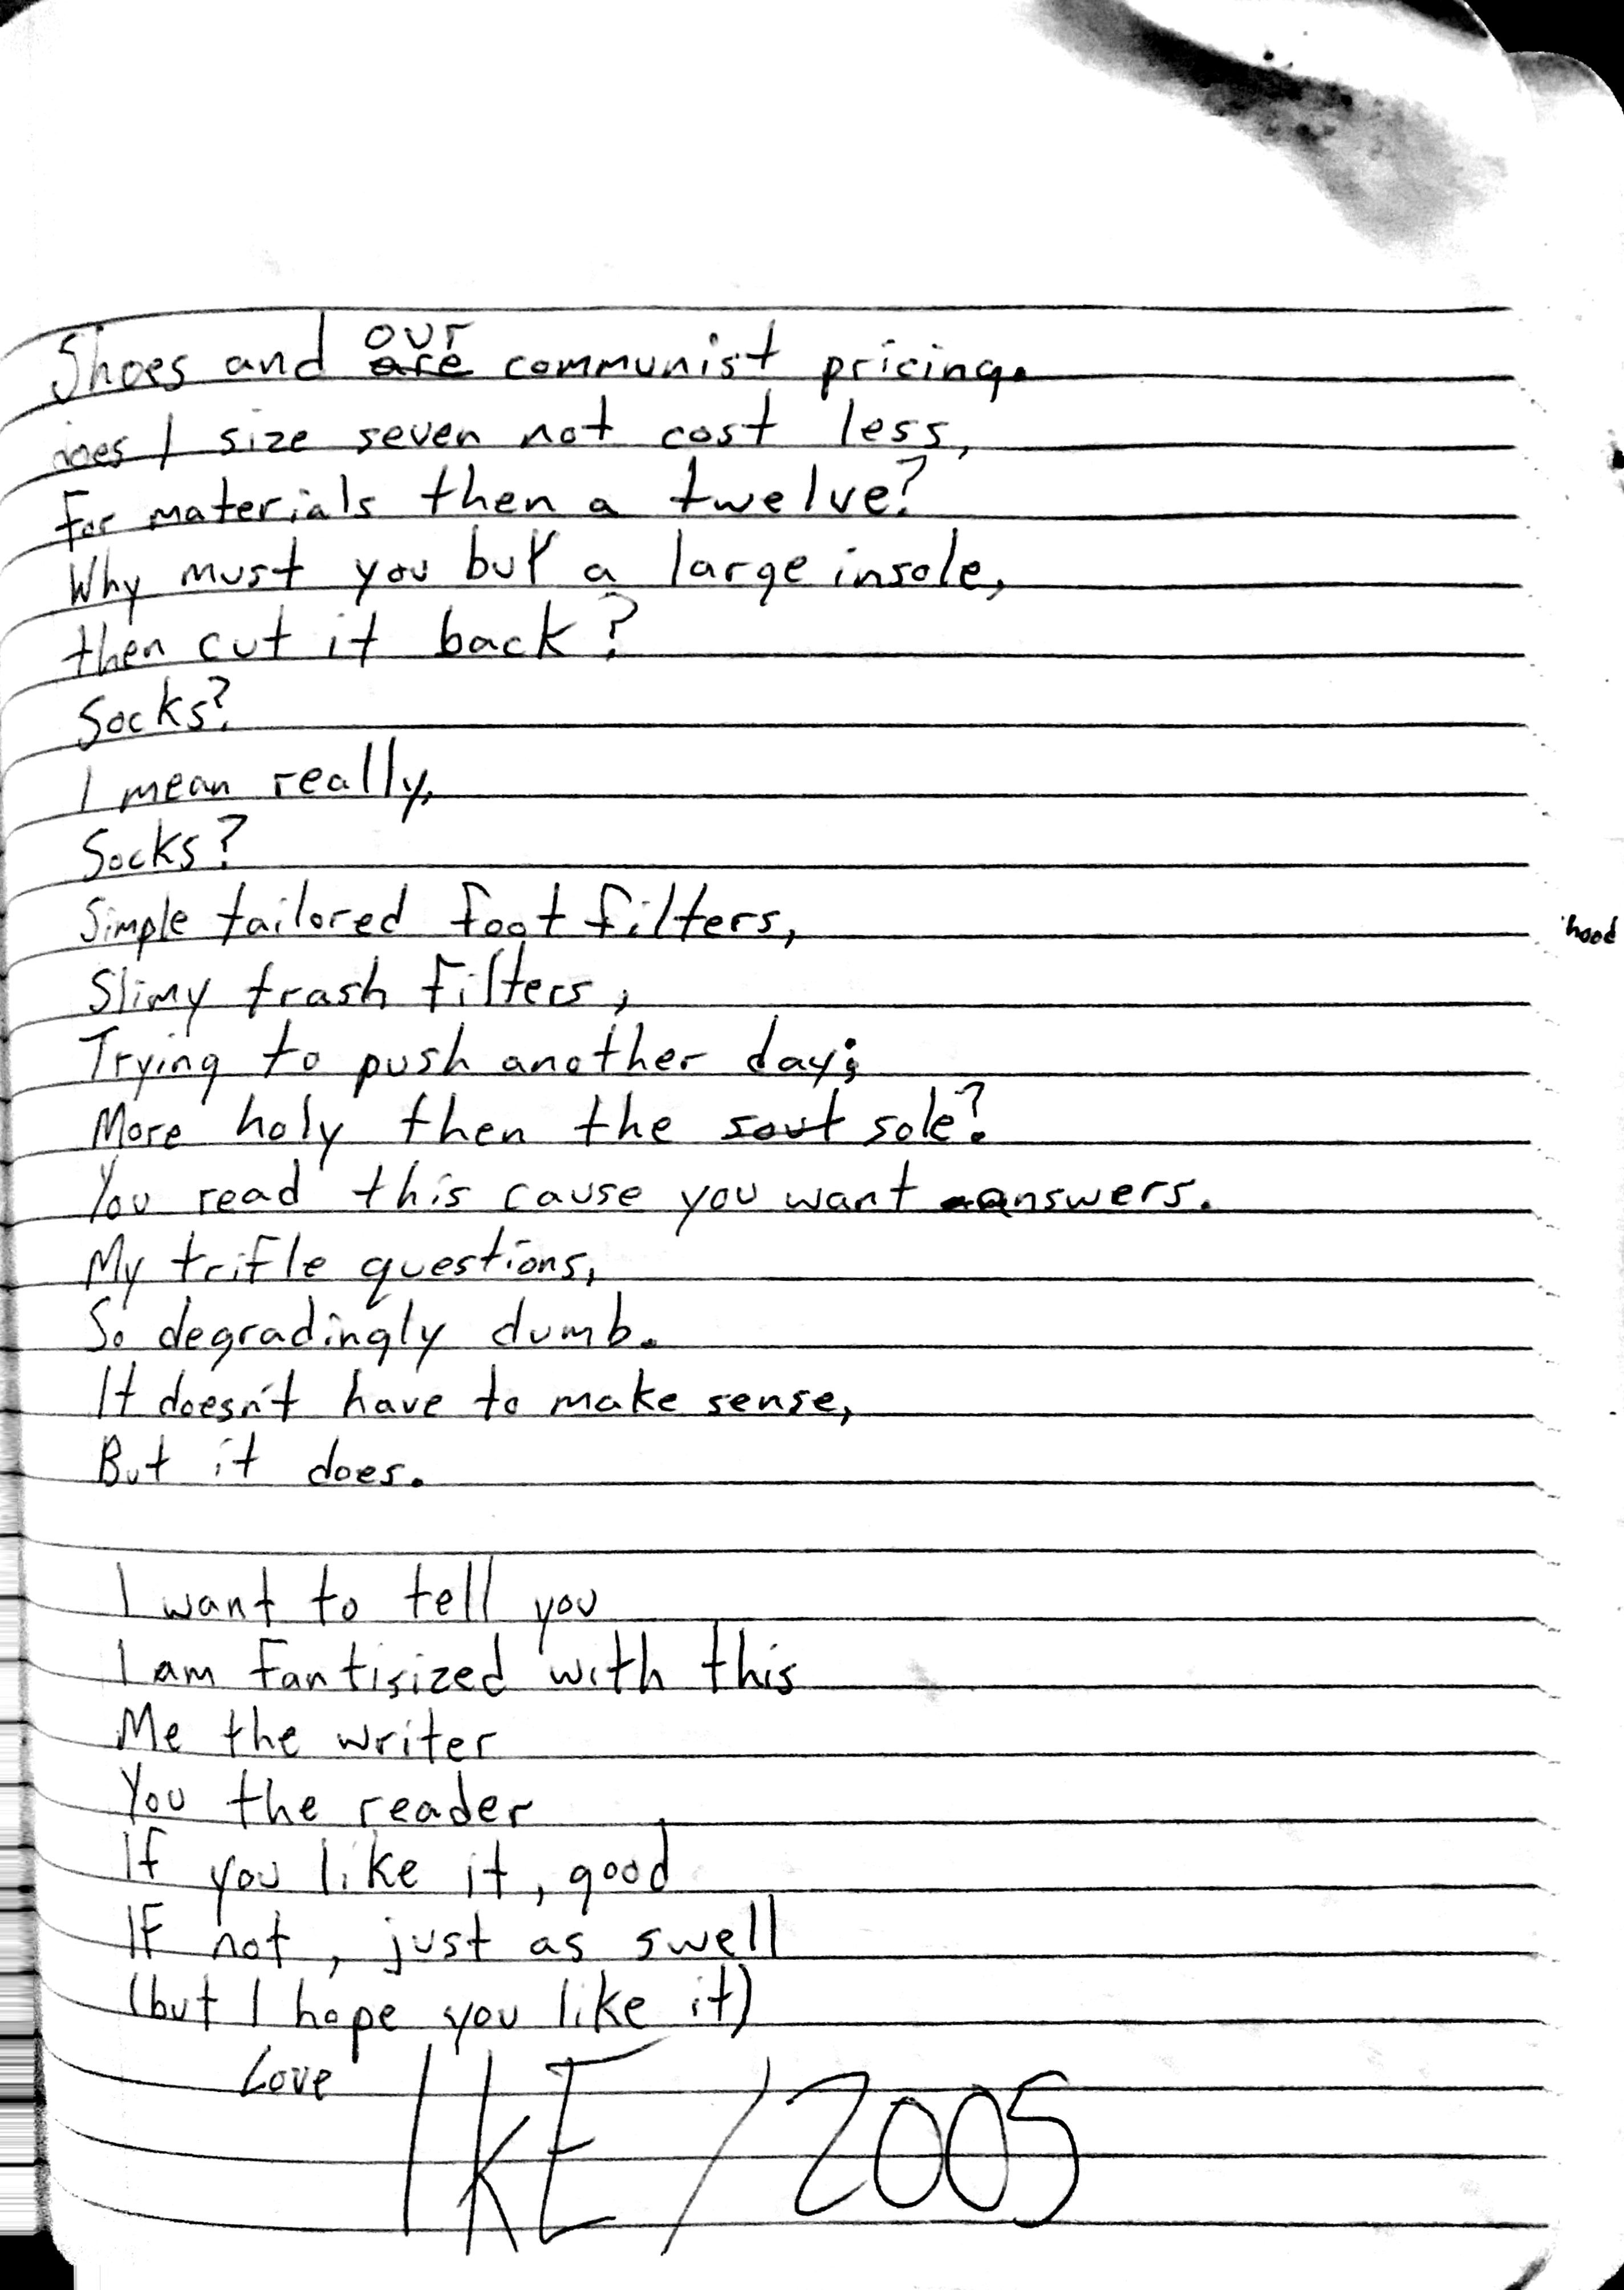 Shoes and our are communist pricing.
does I size seven not cost less,
For materials then a twelve?
Why must you buy a large insole,
then cut it back?
Socks?
I mean really,
Socks?
Simple tailored foot filters,
Slimy trash filters,
Trying to push another day;
More holy then the sole?
You read this cause you want answers.
My trifle questions,
So degradingly dumb.
It doesn't have to make sense,
But it does.
I want to tell you
I am fantisized with this
Me the writer
You the reader
If you like it, good
If not, just as swell
(but I hope you like it)
Love IKE / 2005
hood